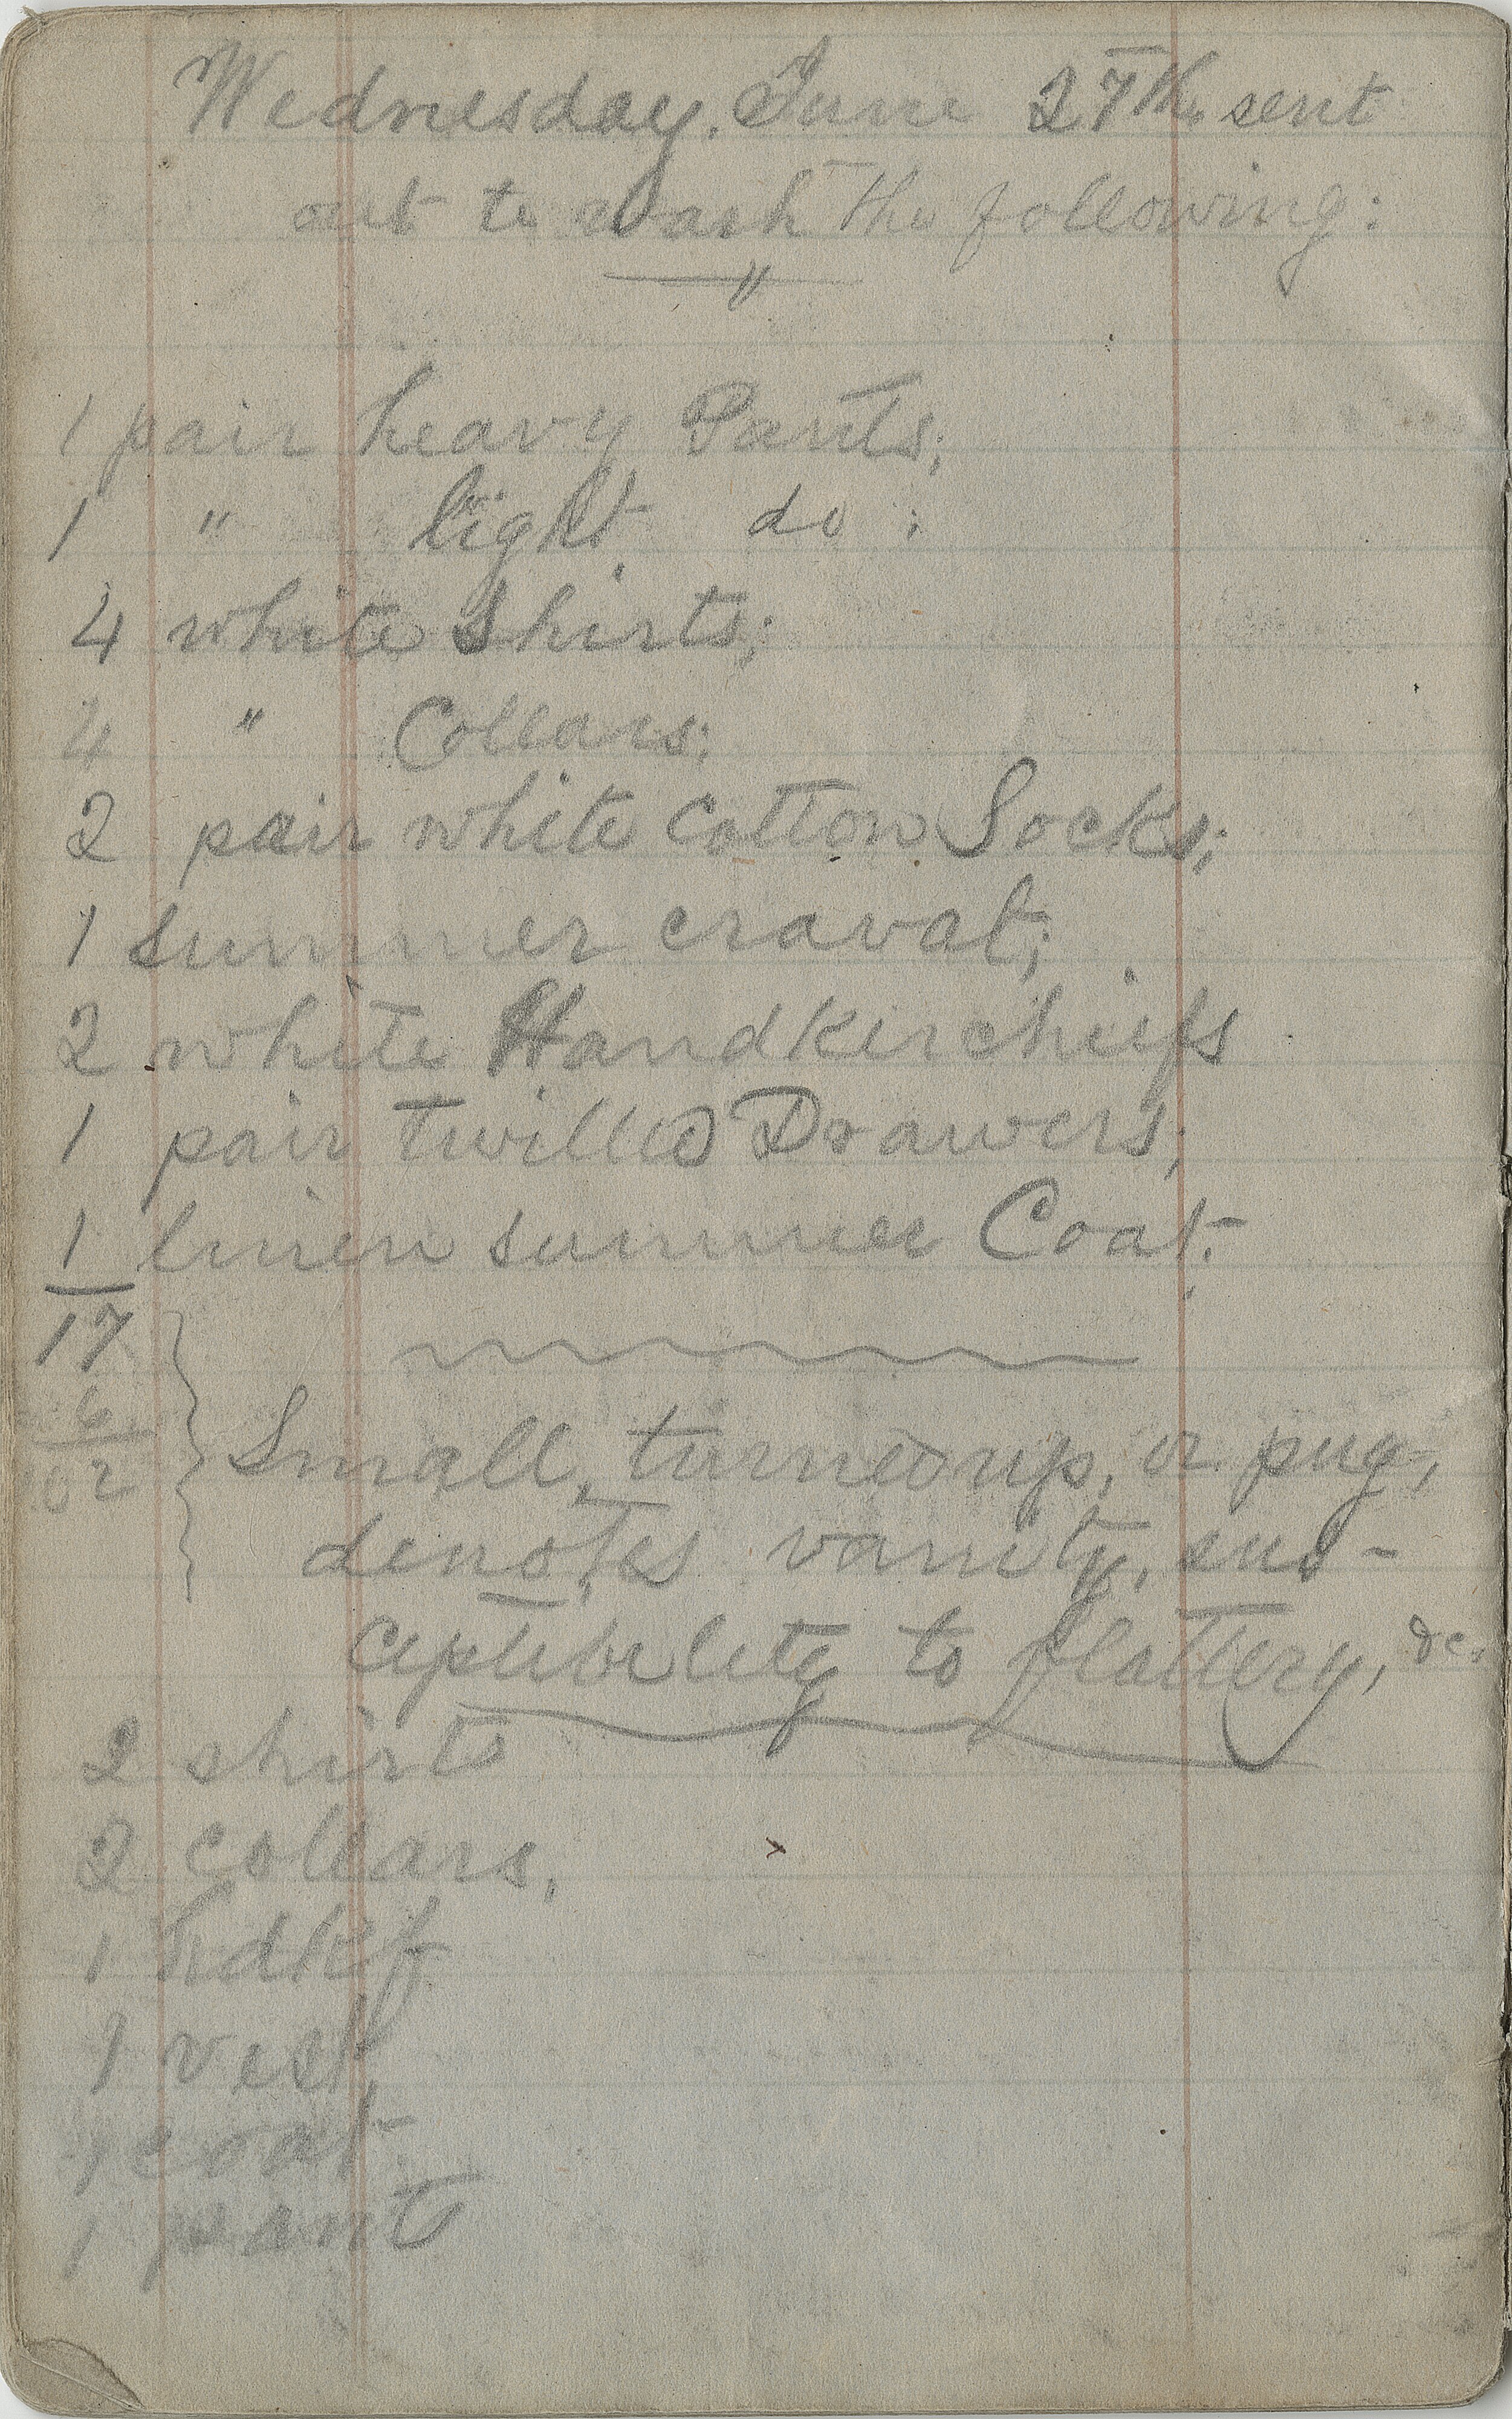 Wednesday, June 27th, sent
out to wash the following:
"
1 pair heavy Pants;
1 " light do ;
4 white shirts;
4 " Collars;
2 pair white cotton Socks;
1 summer cravat;
2 white Handkerchiefs
1 pair Twilled Drawers;
1 linen summer Coat.
17
6
102
Small, turned up, or pug,
denotes vanity, sus-
ceptibility to flattery, &c.
2 shirts
2 collars,
1 hdkf
1 vest,
1 coat
1 pant